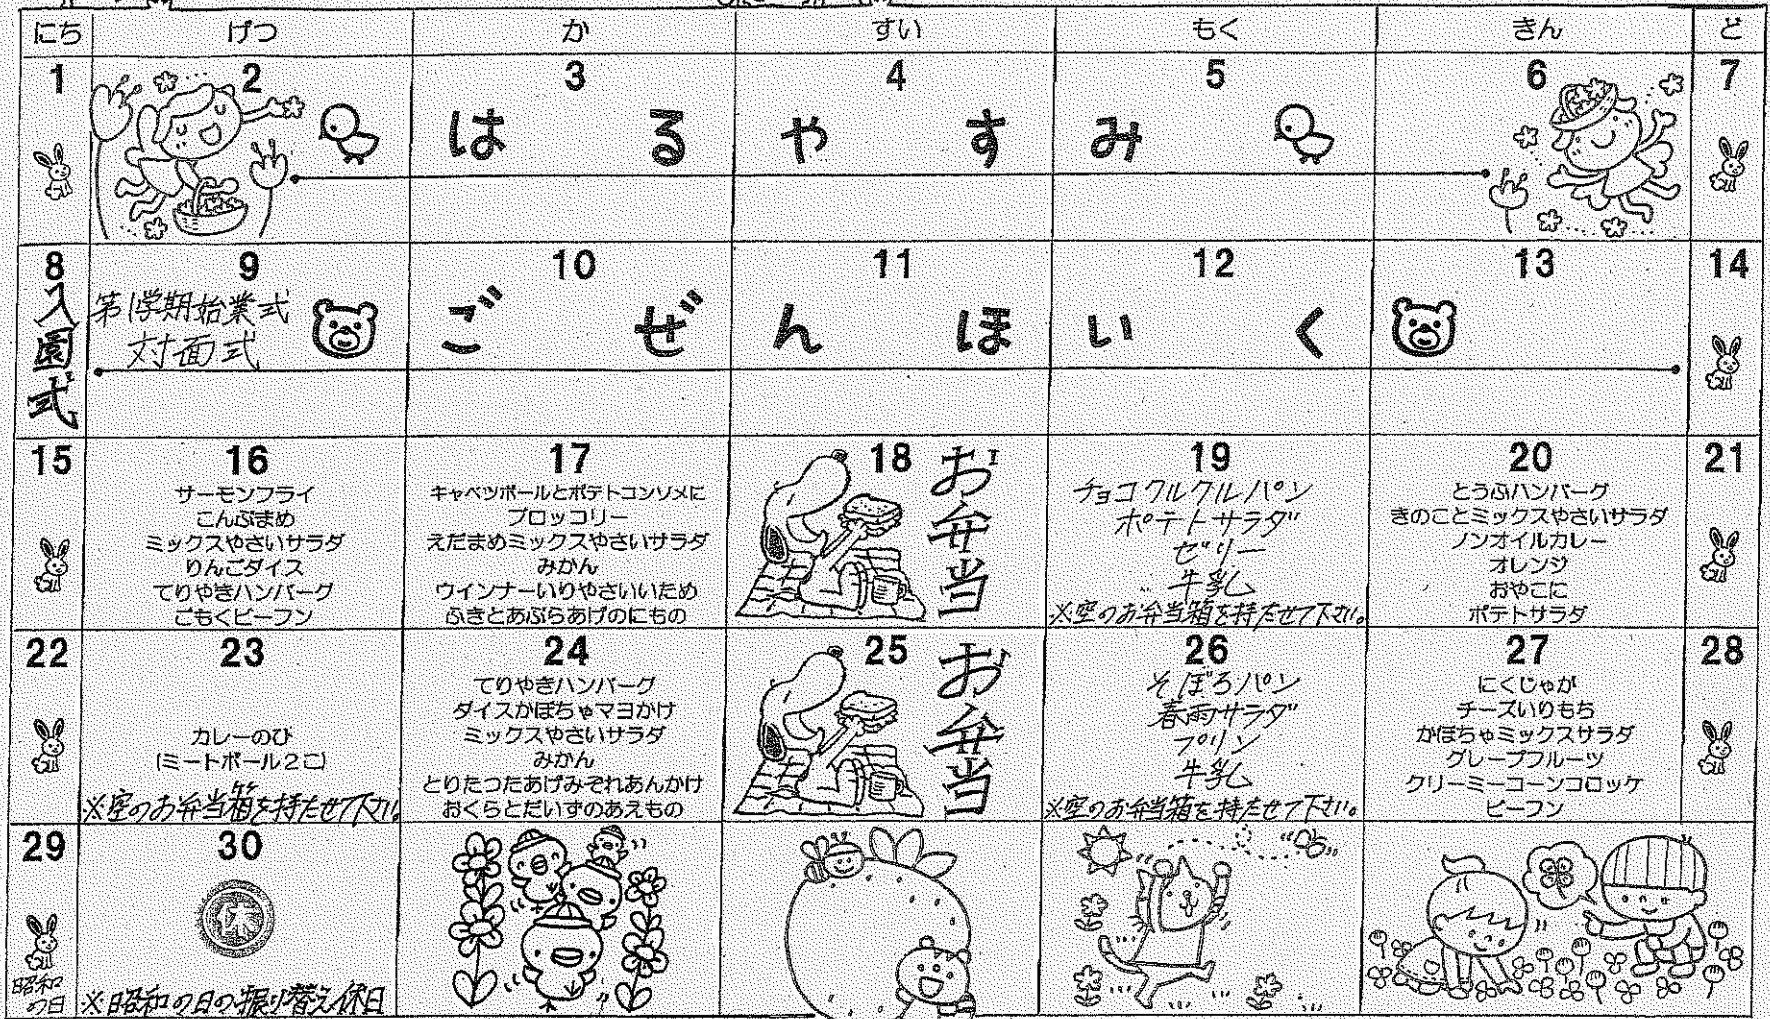 にち げつ か すい もく きん ど
1 2 3 4 5 6 7
はるやすみ
8 9 10 11 12 13 14
入園式
第1学期始業式
対面式
ごぜんほいく
15 16 17 18 19 20 21
サーモンフライ
こんぶまめ
ミックスやさいサラダ
りんごダイス
てりやきハンバーグ
ごもくビーフン
キャベツボールとポテトコンソメに
ブロッコリー
えだまめミックスやさいサラダ
みかん
ウインナーいりやさいいため
ふきとあぶらあげのにもの
お弁当
チョコクルクルパン
ポテトサラダ
ゼリー
牛乳
※空のお弁当箱を持たせて下さい。
とうふハンバーグ
きのことミックスやさいサラダ
ノンオイルカレー
オレンジ
おやこに
ポテトサラダ
22 23 24 25 26 27 28
カレーのひ
(ミートボール2こ)
※空のお弁当箱を持たせて下さい。
てりやきハンバーグ
ダイスかぼちゃマヨかけ
ミックスやさいサラダ
みかん
とりたつたあげみぞれあんかけ
おくらとだいずのあえもの
お弁当
そぼろパン
春雨サラダ
プリン
牛乳
※空のお弁当箱を持たせて下さい。
にくじゃが
チーズいりもち
かぼちゃミックスサラダ
グレープフルーツ
クリーミーコーンコロッケ
ビーフン
29 30
昭和
の日
休
※昭和の日の振り替え休日